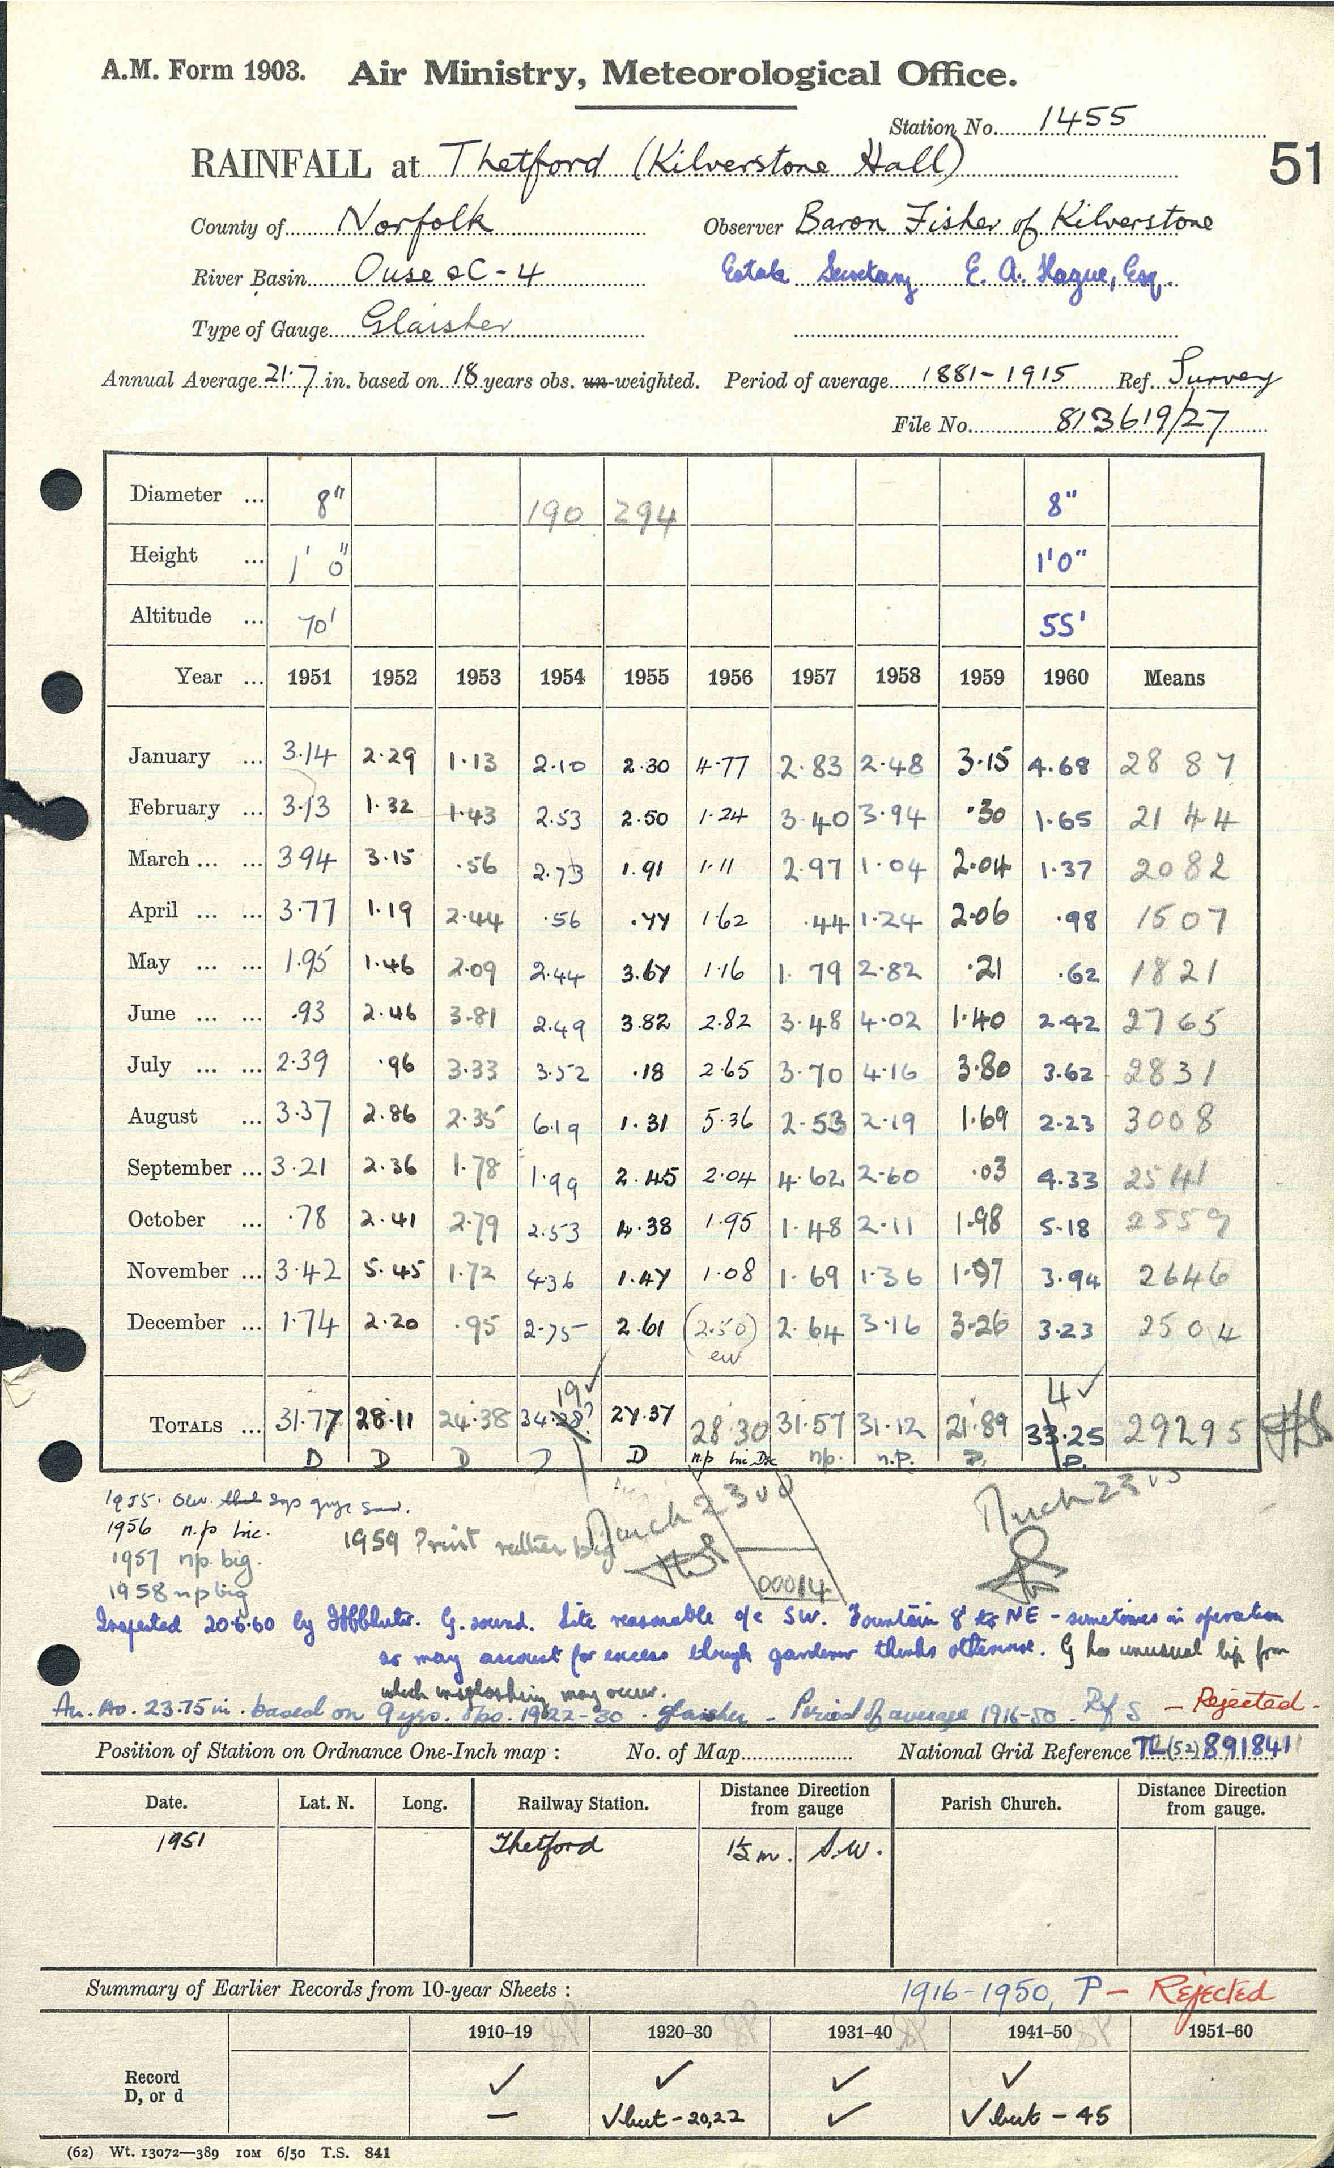 A.M. Form 1903. Air Ministry, Meteorological Office.
Station No. 1455
51
RAINFALL at Thetford (Kilverstone Hall)
County of Norfolk Observer Baron Fisher of Kilverstone
River Basin Ouse & C-4 Estate Secretary E. A. Hague, Esq.
Type of Gauge Glaisher
Annual Average 21.7 in. based on 18 years obs. un-weighted. Period of average 1881-1915 Ref. Survey
File No. 813619/27
Diameter ... 8" 190 294 8"
Height ... 1' 0" 1'0"
Altitude ... 70' 55'
Year ... 1951 1952 1953 1954 1955 1956 1957 1958 1959 1960 Means
January ... 3.14 2.29 1.13 2.10 2.30 4.77 2.83 2.48 3.15 4.68 28 87
February ... 3.13 1.32 1.43 2.53 2.50 1.24 3.40 3.94 .30 1.65 21 44
March ... ... 3 94 3.15 .56 2.73 1.91 1.11 2.97 1.04 2.04 1.37 20 82
April ... ... 3.77 1.19 2.44 .56 .77 1.62 .44 1.24 2.06 .98 15 07
May ... ... 1.95 1.46 2.09 2.44 3.67 1.16 1.79 2.82 .21 .62 18 21
June ... ... .93 2.46 3.81 2.49 3.82 2.82 3.48 4.02 1.40 2.42 27 65
July ... ... 2.39 .96 3.33 3.52 .18 2.65 3.70 4.16 3.80 3.62 28 31
August ... 3.37 2.86 2.35 6.19 1.31 5.36 2.53 2.19 1.69 2.23 30 08
September ... 3.21 2.36 1.78 1.99 2.45 2.04 4.62 2.60 .03 4.33 25 41
October ... .78 2.41 2.79 2.53 4.38 1.95 1.48 2.11 1.98 5.18 25 59
November ... 3.42 5.45 1.72 4 36 1.47 1.08 1.69 1.36 1.97 3.94 26 46
December ... 1.74 2.20 .95 2.75 2.61 (2.50) 2.64 3.16 3.26 3.23 25 04
ew
19✓ 4✓
TOTALS ... 31.77 28.11 24.38 34.28? 27.37 28.30 31.57 31.12 21.89 33.25 292 95
D D D D D n.p Inc Dec n.p. n.p. D. D.
1955. Obr. says gauge
1956 n.p Inc.
1957 n.p. big.
1958 n p big
1959 Print rather big
March 2300
March 2303
00014
Inspected 20.6.60 by G. sound. Site reasonable o/c SW. Fountain 8' to NE - sometimes in operation
so may account for excess though gardener thinks otherwise. G has unusual lip from
which insplashing may occur.
An. Av. 23.75 in. based on 9 yrs. obs. 1922-30. Glaisher - Period of average 1916-50. Ref S - Rejected.
Position of Station on Ordnance One-Inch map : No. of Map National Grid Reference TL(52) 891841
Date. Lat. N. Long. Railway Station. Distance from gauge Direction Parish Church. Distance Direction from gauge.
1951 Thetford 1½ m. S.W.
Summary of Earlier Records from 10-year Sheets : 1916-1950, P - Rejected
1910-19 1920-30 1931-40 1941-50 1951-60
Record ✓ ✓ ✓ ✓
D, or d — ✓ but - 20,22 ✓ ✓ but - 45
(62) Wt. 13072—389 10M 6/50 T.S. 841